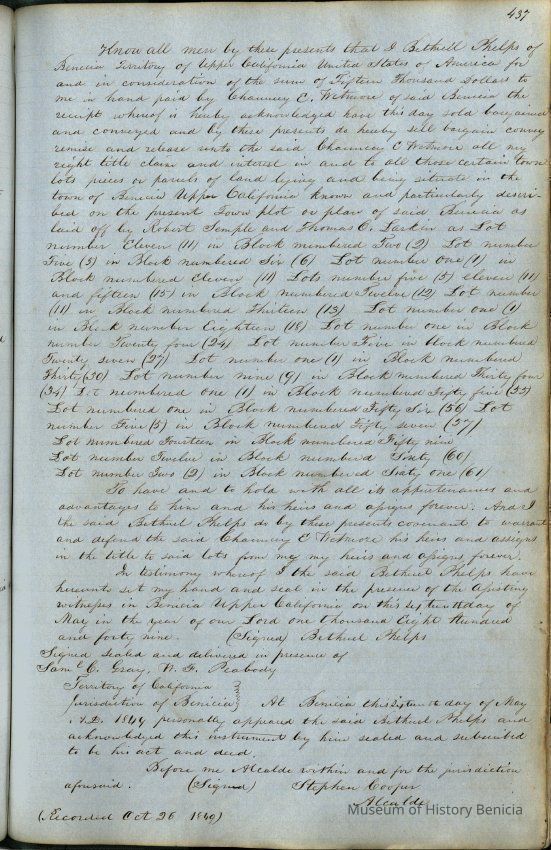 437
Know all men by these presents that I Bethuel Phelps of
Benicia Territory of Upper California United States of America for
and in consideration of the sum of Fifteen Thousand Dollars to
me in hand paid by Chauncey C. Wetmore of said Benicia the
receipt whereof is hereby acknowledged have this day sold bargained
and conveyed and by these presents do hereby sell bargain convey
remise and release unto the said Chauncey C Wetmore all my
right title claim and interest in and to all those certain town
lots pieces or parcels of land lying and being situate in the
town of Benicia Upper California known and particularly descri-
bed on the present Town plot or plan of said Benicia as
laid off by Robert Semple and Thomas O. Larkin as Lot
number Eleven (11) in Block numbered Two (2) Lot number
Five (5) in Block numbered Six (6) Lot number one (1) in
Block numbered Eleven (11) Lots number five (5) eleven (11)
and fifteen (15) in Block numbered Twelve (12) Lot number
(11) in Block numbered Thirteen (13) Lot number one (1)
in Block number Eighteen (18) Lot number one in Block
number Twenty four (24) Lot number Five in Block numbered
Twenty seven (27) Lot number one (1) in Block numbered
Thirty (30) Lot number nine (9) in Block numbered Thirty four
(34) Lot numbered one (1) in Block numbered Fifty five (55)
Lot numbered one in Block numbered Fifty Six (56) Lot
number Five (5) in Block numbered Fifty seven (57)
Lot numbered Fourteen in Block numbered Fifty nine
Lot number Twelve in Block numbered Sixty (60)
Lot number Two (2) in Block numbered Sixty one (61)
To have and to hold with all its appurtenances and
advantages to him and his heirs and assigns forever. And I
the said Bethuel Phelps do by these presents covenant to warrant
and defend the said Chauncey C Wetmore his heirs and assigns
in the title to said lots from me my heirs and assigns forever.
In testimony whereof I the said Bethuel Phelps have
hereunto set my hand and seal in the presence of the
witnesses in Benicia Upper California on this day of
May in the year of our Lord one thousand Eight Hundred
and forty nine. (Signed) Bethuel Phelps
Signed sealed and delivered in presence of
Saml C. Gray, W. F. Peabody
Territory of California
Jurisdiction of Benicia } At Benicia this day of May
A.D. 1849 personally appeared the said Bethuel Phelps and
acknowledged this instrument by him sealed and subscribed
to be his act and deed.
Before me Alcalde within and for the jurisdiction
aforesaid. (Signed) Stephen Cooper
Alcalde
(Recorded Oct 26 1849)
Museum of History Benicia